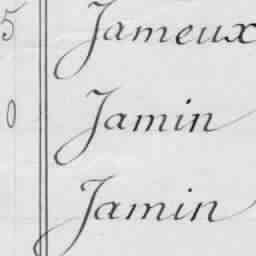 5 Jameux
0 Jamin
Jamin